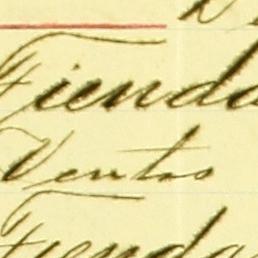 Tienda
Ventas
Tienda